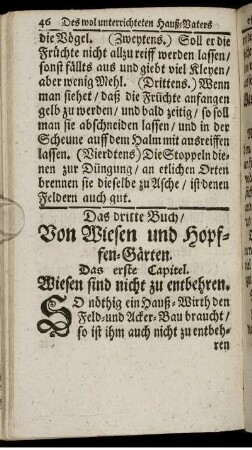 46 Des wol unterrichteten Hauß-Vaters
die Vögel. (Zweytens.) Soll er die
Früchte nicht allzu reiff werden lassen/
sonst fällts aus und giebt viel Kleyen/
aber wenig Mehl. (Drittens.) Wenn
man siehet/ daß die Früchte anfangen
gelb zu werden/ und bald zeitig/ so soll
man sie abschneiden lassen/ und in der
Scheune auff dem Halm mit ausreiffen
lassen. (Vierdtens) Die Stoppeln die-
nen zur Düngung/ an etlichen Orten
brennen sie dieselbe zu Asche/ ist denen
Feldern auch gut.
Das dritte Buch/
Von Wiesen und Hopf-
fen-Gärten.
Das erste Capitel.
Wiesen sind nicht zu entbehren.
SO nöthig ein Hauß-Wirth den
Feld- und Acker-Bau braucht/
so ist ihm auch nicht zu entbeh-
ren